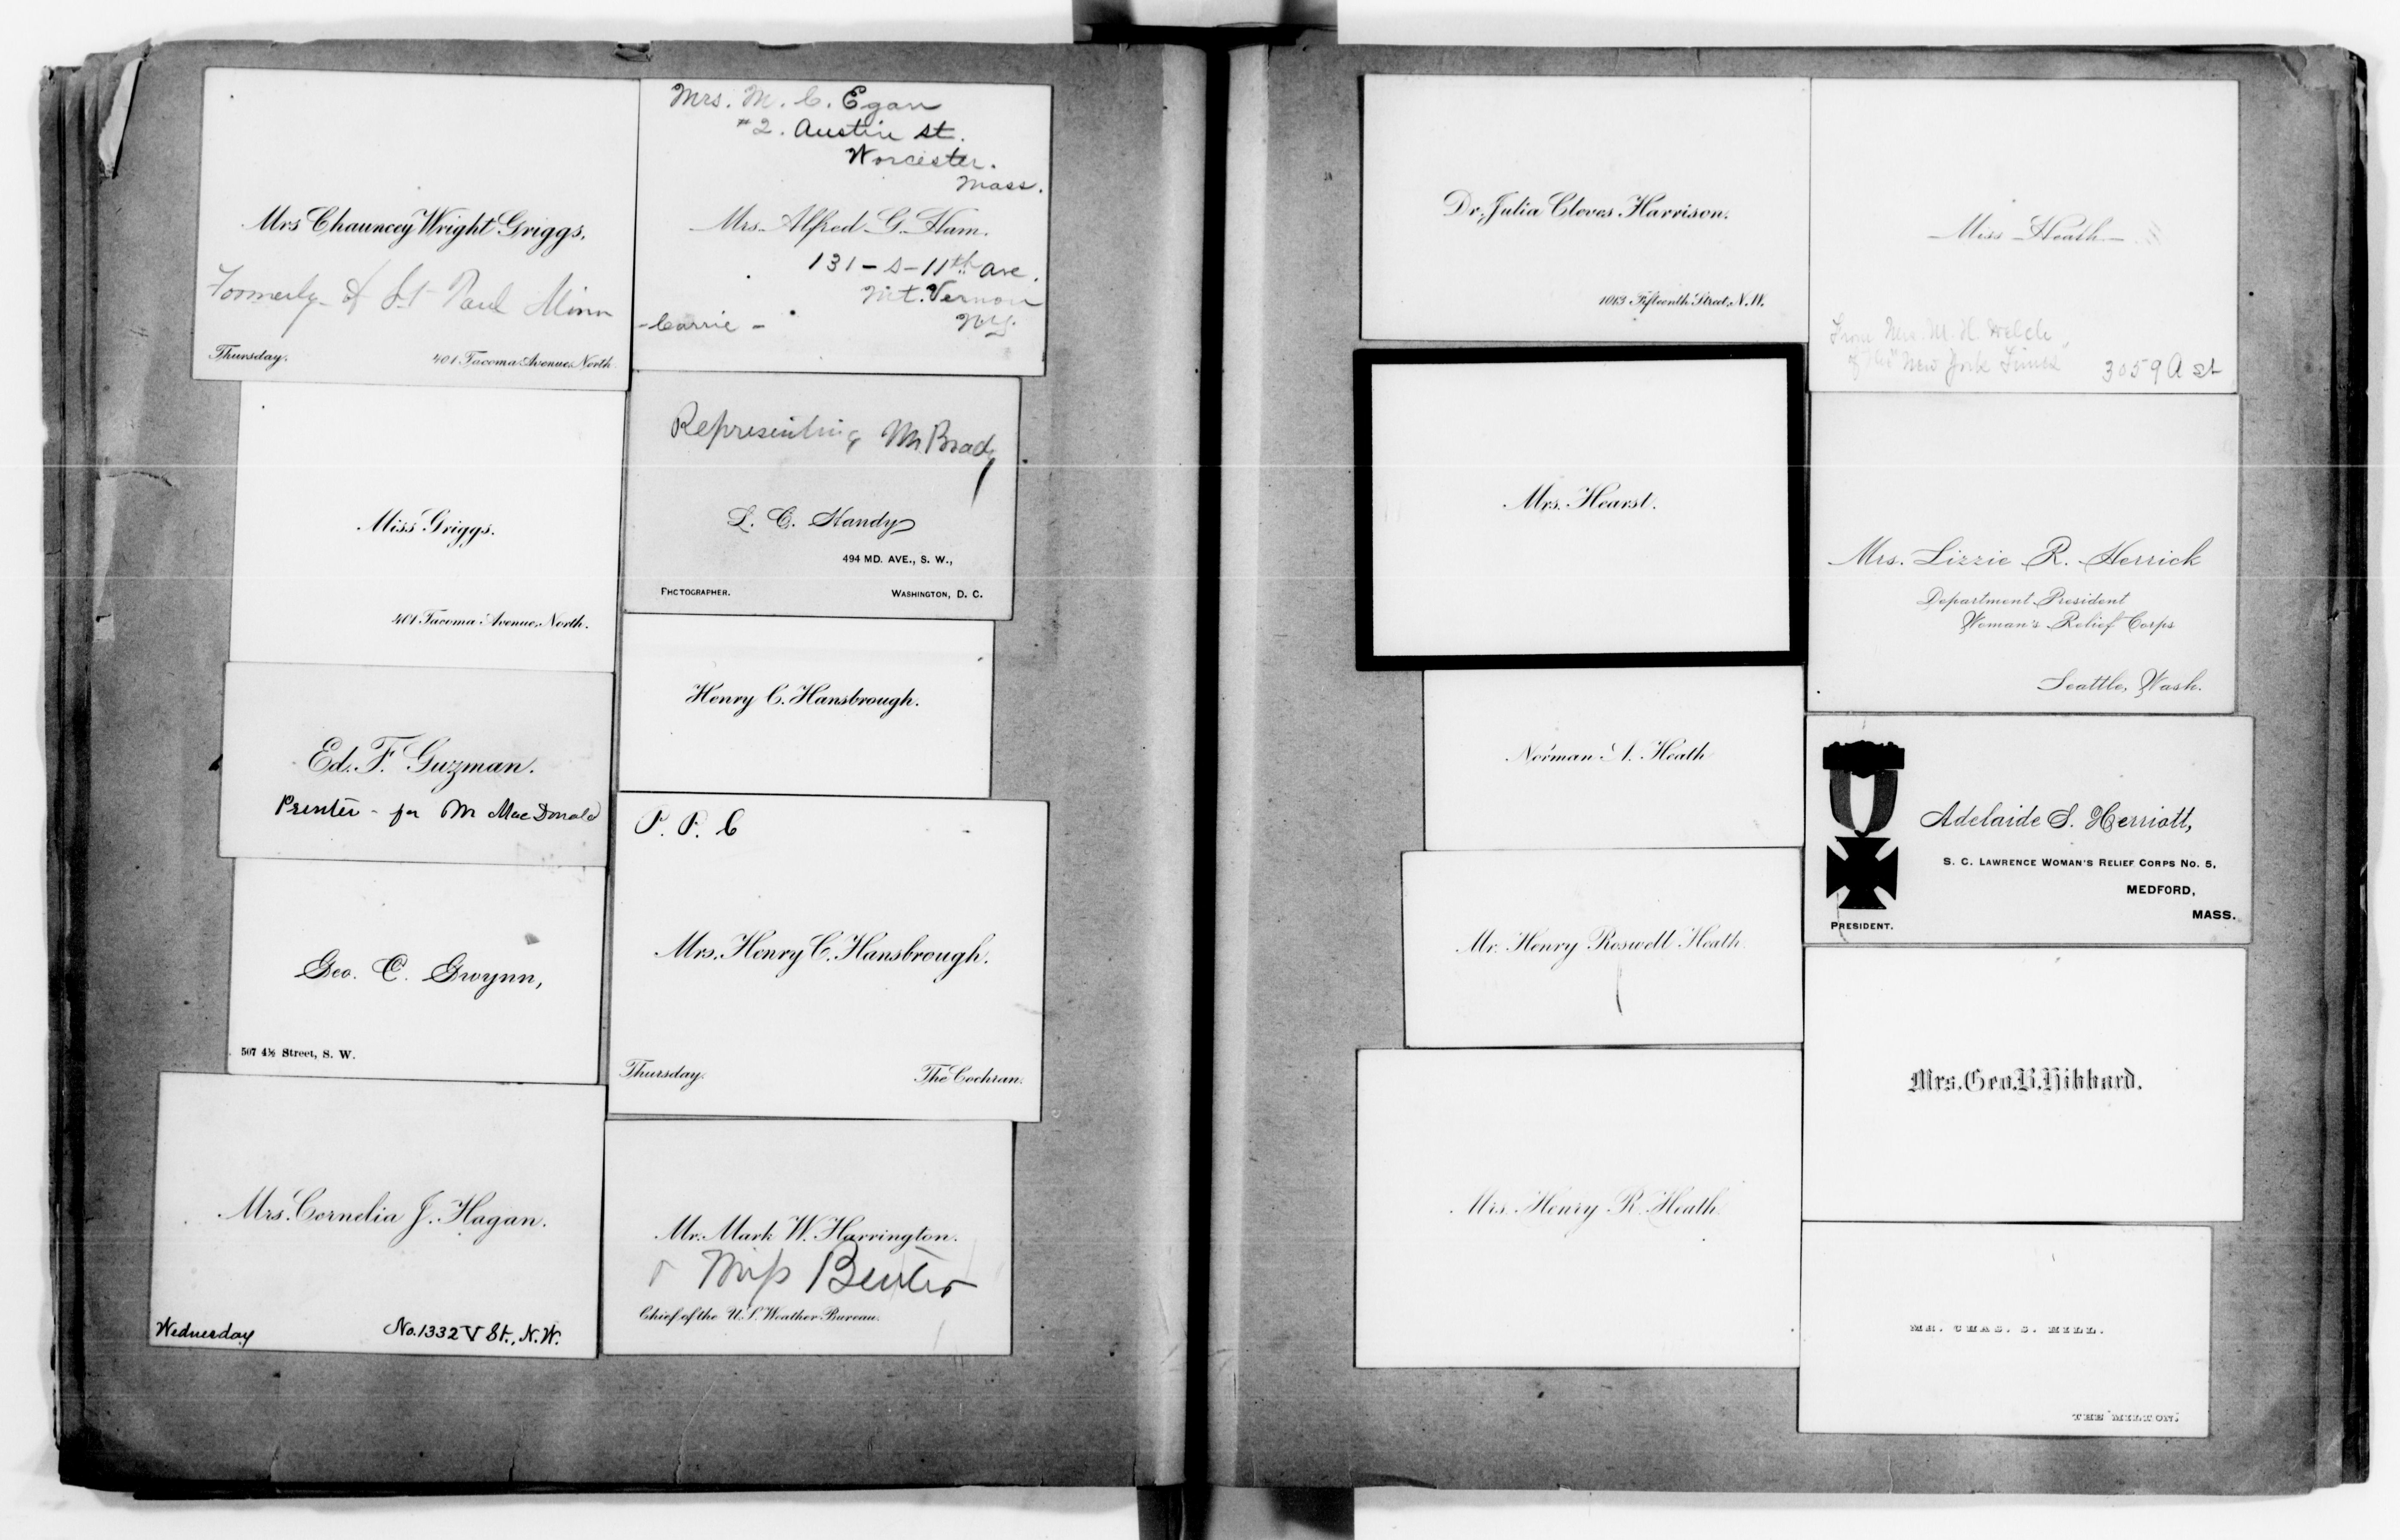 Mrs Chauncey Wright Griggs,
Formerly of St Paul Minn
Thursday.
401 Tacoma Avenue, North.
Miss Griggs.
401 Tacoma Avenue, North.
Ed. F. Guzman.
Printer - for Mr MacDonald
Geo. C. Gwynn,
507 4½ Street, S. W.
Mrs. Cornelia J. Hagan.
Wednesday
No. 1332 V St., N.W.
Mrs. M. C. Egan
#2. Austin st.
Worcester.
Mass.
Mrs. Alfred G. Ham.
131 - S - 11th ave.
Mt. Vernon
- Carrie -
N.Y.
Representing Mr Brady
L. C. Handy
494 MD. AVE., S. W.,
PHOTOGRAPHER.
WASHINGTON, D. C.
Henry C. Hansbrough.
P. P. C
Mrs. Henry C. Hansbrough.
Thursday.
The Cochran.
Mr. Mark W. Harrington.
Miss
Chief of the U.S. Weather Bureau.
Dr. Julia Cleves Harrison.
1013 Fifteenth Street, N.W.
Mrs. Hearst.
Norman A. Heath
Mr. Henry Roswell Heath
Mrs. Henry R. Heath
Miss Heath
From Mrs. M. H. Welch
of the "New York Times"
3059 Q St
Mrs. Lizzie R. Herrick
Department President
Woman's Relief Corps
Seattle, Wash.
Adelaide S. Herriott,
S. C. LAWRENCE WOMAN'S RELIEF CORPS NO. 5,
MEDFORD,
MASS.
PRESIDENT.
Mrs. Geo. B. Hibbard.
MR. CHAS. S. HILL.
THE MILTON.